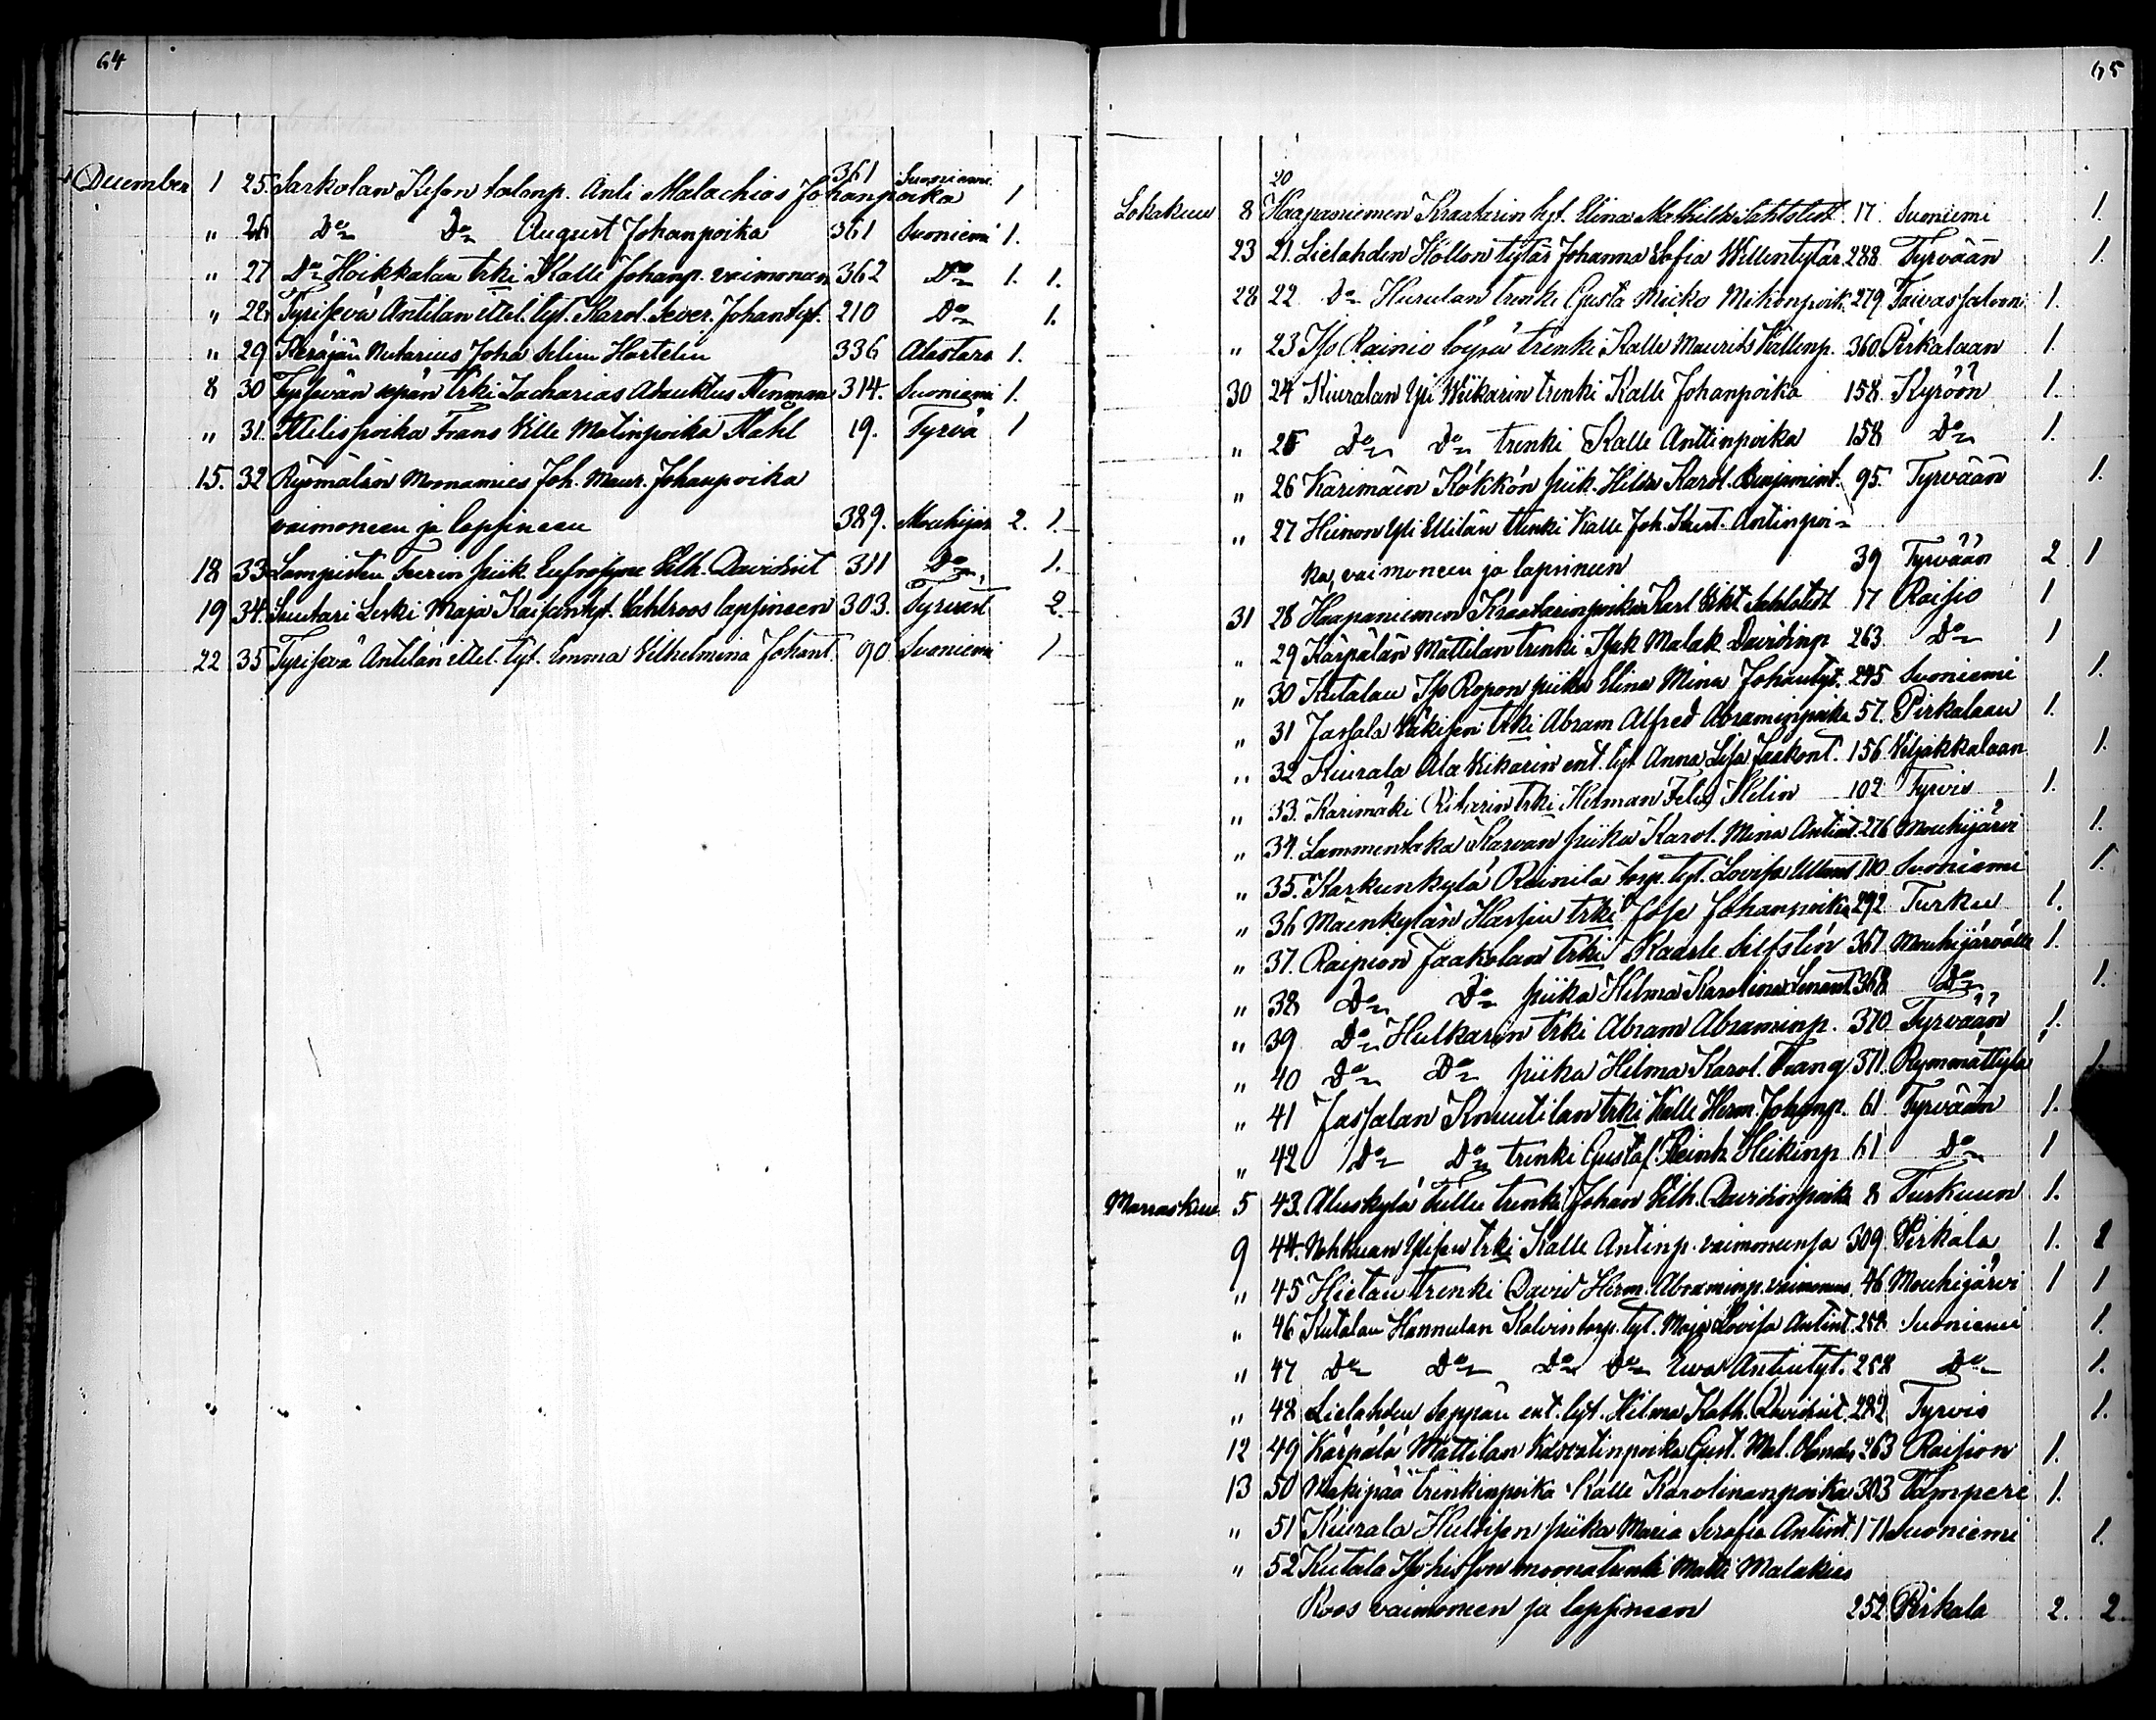 64
December 1 25. Sarkolan Keson talonp. Anti Malachias Johanpoika 361 Suoniemi 1
" 26 Do Do August Johanpoika 361 Suoniemi 1.
" 27 Do Hoikkalan trki Kalle Johanp. vaimonen 362 Do 1. 1.
" 28 Tyrisevä Antilan ittel. tyt. Karol. Sever. Johantyt. 210 Do 1.
" 29 Keräjän Notarius Joha Selim Hartelin 336 Alastaro 1.
8 30 Tyrisevän sepän trki Zacharias Adauktus Stenman 314. Suoniemi 1.
" 31. Ittelispoika Frans Ville Matinpoika Ståhl 19. Tyrvä 1
15. 32 Ryömälän Moonamies Joh. Maur. Johanpoika
vaimoneen ja lapsineen 389. Mouhijär 2. 1.
18 33 Lampisten Frerin piik. Eufrosyne Vilh. Davidint 311 Do 1.
19 34. Suutari Leski Maja Kaisantyt. Vahlroos lapsineen 303. Tyrvist 2.
22 35 Tyrisevä Antilan ittel. tyt. Emma Vilhelmina Johant. 90 Suoniemi 1
65
Lokakuu 8 20 Haapaniemen Kraatarin tyt. Elina Mathilda Sahlstedt 17. Suoniemi 1.
23 21. Lielahden Kollon tytär Johanna Sofia Villentytär 288 Tyrvään 1.
28 22 Do Hurulan trenki Gusta Miiko Mikonpoik. 279 Taivassaloon 1.
" 23 Iso Rainio trenki Kalle Maurits Kallenp. 360. Pirkalaan 1.
30 24 Kiuralan Yli Wikarin trenki Kalle Johanpoika 158. Kyröön 1.
" 25 Do Do trenki Kalle Anttinpoika 158 Do 1.
" 26 Karimäen Kökkön piik. Hilda Karol. Benjamint. 95. Tyrvään 1.
" 27 Heinon Yli Uotilan trenki Kalle Joh. Kust. Antinpoi-
ka, vaimoneen ja lapsineen 39 Tyrvään 2 1
31 28 Haapaniemen Kraatarinpoika Karl Vikt. Sahlstedt 17 Raisio 1
" 29 Kärpälän Mattilan trenki Isak Malak. Davidinp 263 Do 1
" 30 Kutalan Iso Ropon piika Elina Mina Johantyt. 245 Suoniemi 1.
" 31 Jassala Väkisen trki Abram Alfred Abraminpoika 57. Pirkalaan 1.
" 32 Kiurala Ala Vikarin ent. tyt Anna Lisa Jaakont. 156 Viljakkalaan 1.
" 33. Karimäki Ritarin trki Herman Felix Helin 102 Tyrvis 1.
" 34. Lammentaka Karvan piika Karol. Mina Antint. 276 Mouhijärvi 1.
" 35. Karkunkylä Rainila torp. tyt. Lovisa 110 Suoniemi 1.
" 36 Mäenkylän Harsun trki Josa Johanpoika 292 Turku 1.
" 37. Raipion Jaakolan trki Kaarle Silfstén 367 Mouhijärvälle 1.
" 38 Do Do piika Hilma Karolina 368 Do 1.
" 39 Do Hulkarin trki Abram Abraminp. 370 Tyrvään 1.
" 40 Do Do piika Hilma Karol. Frang 371. Rymmättylä 1
" 41 Jassalan Knuutilan trki Kalle Herm. Johanp. 61 Tyrvään 1.
" 42 Do Do trenki Gustaf Reinh Heikinp 61 Do 1
Marraskuu 5 43. Aluskylä Tullu trenki Johan Vilh. Davidinpoika 8 Turkuun 1.
9 44. Nohkuan Ylisen trki Kalle Antinp. vaimoneensa 309 Pirkala 1. 1
" 45 Hietan trenki David Herm. Abraminp. vaimoneen 46 Mouhijärvi 1 1
" 46 Kutalan Hannulan Kalvin torp. tyt. Maja Lovisa Antint. 258 Suoniemi 1.
" 47 Do Do Do Do Eva Antintyt. 258 Do 1.
" 48 Lielahden Seppän ent. tyt. Hilma Kath. Davidint. 282 Tyrvis 1.
12 49 Kärpälä Mattilan Kasvatinpoika Gust. Mal. 263 Raision 1.
13 50 Väkipää trenkinpoika Kalle Karolinanpoika 303 Tampere 1.
" 51 Kiurala Huldisen piika Maria Serafia Antint. 171 Suoniemi 1.
" 52 Kutala Iso moonatrenki Matti Malakias
Roos vaimoneen ja lapsineen 252 Pirkala 2. 2